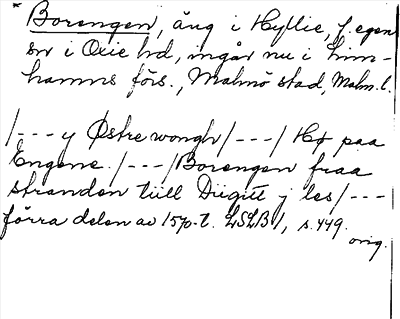 * Borengen, äng i Hyllie, f. egen
sn i Oxie hd, ingår nu i Lim-
hamns förs., Malmö stad, Malm. l.
/--- y Østre wongh /---/ Hø paa
Engene. /---/ Borengen fraa
stranden tiill Diigitt j les /---
förra delen av 1570-t. LSLB 1, s. 449.
orig.